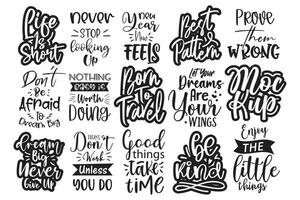 Life
is
Short
never
STOP
looking
Up
New
Year
New
FEELS
Best
Pattern
PROVE
them
WRONG
Don't
Be
Afraid
to
Dream Big
NOTHING
Worth
DOING
Born
to
Travel
Let Your
Dreams
Are
Your
WINGS
Moc
kup
Dream
Big
Never
Give Up
Don't
Work
Unless
YOU DO
Good
things
take
time
be
Kind
Enjoy
THE
little
things